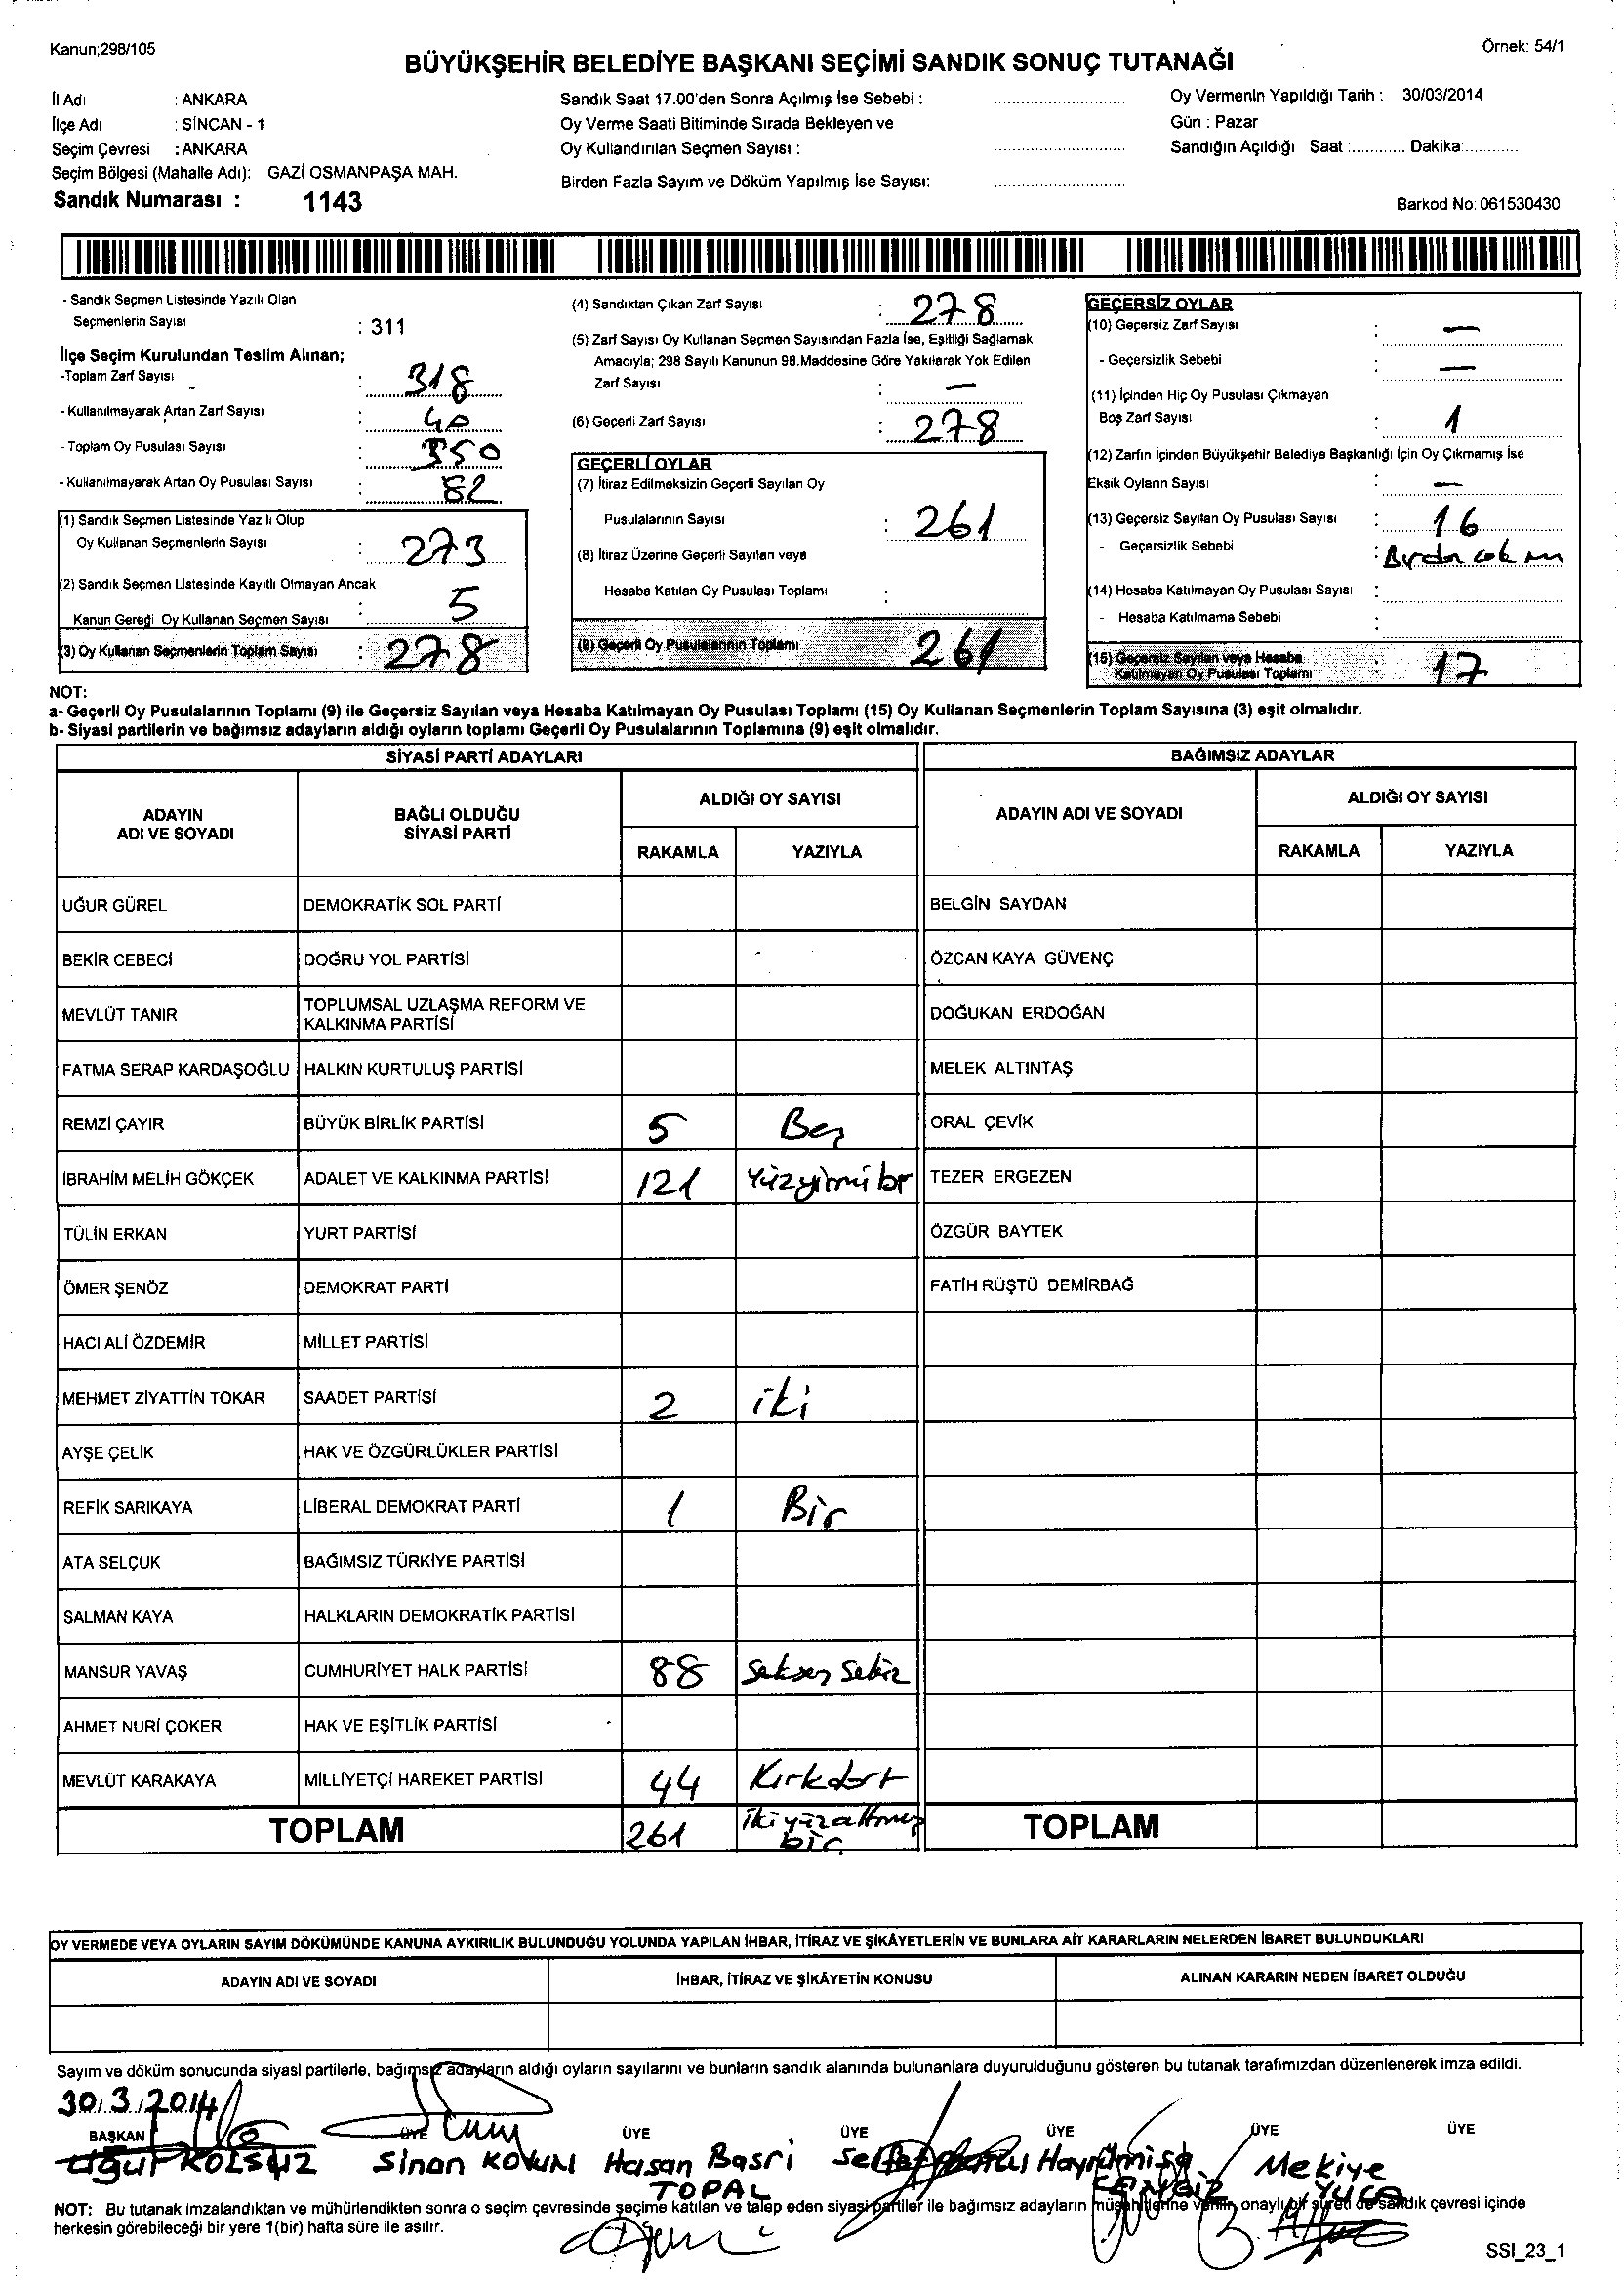 Kanun;298/105
Örnek: 54/1
BÜYÜKŞEHİR BELEDİYE BAŞKANI SEÇİMİ SANDIK SONUÇ TUTANAĞI
İl Adı : ANKARA
İlçe Adı : SİNCAN - 1
Seçim Çevresi : ANKARA
Seçim Bölgesi (Mahalle Adı): GAZİ OSMANPAŞA MAH.
Sandık Numarası : 1143
Sandık Saat 17.00'den Sonra Açılmış İse Sebebi :
Oy Verme Saati Bitiminde Sırada Bekleyen ve
Oy Kullandırılan Seçmen Sayısı :
Birden Fazla Sayım ve Döküm Yapılmış İse Sayısı:
Oy Vermenin Yapıldığı Tarih : 30/03/2014
Gün : Pazar
Sandığın Açıldığı Saat :............ Dakika:............
Barkod No: 061530430
- Sandık Seçmen Listesinde Yazılı Olan
Seçmenlerin Sayısı : 311
İlçe Seçim Kurulundan Teslim Alınan;
-Toplam Zarf Sayısı : 318
- Kullanılmayarak Artan Zarf Sayısı : 40
- Toplam Oy Pusulası Sayısı : 350
- Kullanılmayarak Artan Oy Pusulası Sayısı : 82
(1) Sandık Seçmen Listesinde Yazılı Olup
Oy Kullanan Seçmenlerin Sayısı : 273
(2) Sandık Seçmen Listesinde Kayıtlı Olmayan Ancak
Kanun Gereği Oy Kullanan Seçmen Sayısı : 5
(3) Oy Kullanan Seçmenlerin Toplam Sayısı : 278
(4) Sandıktan Çıkan Zarf Sayısı : 278
(5) Zarf Sayısı Oy Kullanan Seçmen Sayısından Fazla İse, Eşitliği Sağlamak
Amacıyla; 298 Sayılı Kanunun 98.Maddesine Göre Yakılarak Yok Edilen
Zarf Sayısı : —
(6) Geçerli Zarf Sayısı : 278
GEÇERLİ OYLAR
(7) İtiraz Edilmeksizin Geçerli Sayılan Oy
Pusulalarının Sayısı : 261
(8) İtiraz Üzerine Geçerli Sayılan veya
Hesaba Katılan Oy Pusulası Toplamı :
(9) Geçerli Oy Pusulalarının Toplamı 261
GEÇERSİZ OYLAR
(10) Geçersiz Zarf Sayısı : —
- Geçersizlik Sebebi : —
(11) İçinden Hiç Oy Pusulası Çıkmayan
Boş Zarf Sayısı : 1
(12) Zarfın İçinden Büyükşehir Belediye Başkanlığı İçin Oy Çıkmamış İse
Eksik Oyların Sayısı : —
(13) Geçersiz Sayılan Oy Pusulası Sayısı : 16
- Geçersizlik Sebebi :
(14) Hesaba Katılmayan Oy Pusulası Sayısı :
- Hesaba Katılmama Sebebi :
(15) Geçersiz Sayılan veya Hesaba
Katılmayan Oy Pusulası Toplamı : 17
NOT:
a- Geçerli Oy Pusulalarının Toplamı (9) ile Geçersiz Sayılan veya Hesaba Katılmayan Oy Pusulası Toplamı (15) Oy Kullanan Seçmenlerin Toplam Sayısına (3) eşit olmalıdır.
b- Siyasi partilerin ve bağımsız adayların aldığı oyların toplamı Geçerli Oy Pusulalarının Toplamına (9) eşit olmalıdır.
SİYASİ PARTİ ADAYLARI
BAĞIMSIZ ADAYLAR
ADAYIN ADI VE SOYADI
BAĞLI OLDUĞU SİYASİ PARTİ
ALDIĞI OY SAYISI
RAKAMLA YAZIYLA
ADAYIN ADI VE SOYADI
ALDIĞI OY SAYISI
RAKAMLA YAZIYLA
UĞUR GÜREL DEMOKRATİK SOL PARTİ BELGİN SAYDAN
BEKİR CEBECİ DOĞRU YOL PARTİSİ ÖZCAN KAYA GÜVENÇ
MEVLÜT TANIR TOPLUMSAL UZLAŞMA REFORM VE KALKINMA PARTİSİ DOĞUKAN ERDOĞAN
FATMA SERAP KARDAŞOĞLU HALKIN KURTULUŞ PARTİSİ MELEK ALTINTAŞ
REMZİ ÇAYIR BÜYÜK BİRLİK PARTİSİ 5 Beş ORAL ÇEVİK
İBRAHİM MELİH GÖKÇEK ADALET VE KALKINMA PARTİSİ 121 Yüzyirmi bir TEZER ERGEZEN
TÜLİN ERKAN YURT PARTİSİ ÖZGÜR BAYTEK
ÖMER ŞENÖZ DEMOKRAT PARTİ FATİH RÜŞTÜ DEMİRBAĞ
HACI ALİ ÖZDEMİR MİLLET PARTİSİ
MEHMET ZİYATTİN TOKAR SAADET PARTİSİ 2 iki
AYŞE ÇELİK HAK VE ÖZGÜRLÜKLER PARTİSİ
REFİK SARIKAYA LİBERAL DEMOKRAT PARTİ 1 Bir
ATA SELÇUK BAĞIMSIZ TÜRKİYE PARTİSİ
SALMAN KAYA HALKLARIN DEMOKRATİK PARTİSİ
MANSUR YAVAŞ CUMHURİYET HALK PARTİSİ 88 Seksen Sekiz
AHMET NURİ ÇOKER HAK VE EŞİTLİK PARTİSİ
MEVLÜT KARAKAYA MİLLİYETÇİ HAREKET PARTİSİ 44 Kırkdört
TOPLAM 261 ikiyüzaltmış bir TOPLAM
OY VERMEDE VEYA OYLARIN SAYIM DÖKÜMÜNDE KANUNA AYKIRILIK BULUNDUĞU YOLUNDA YAPILAN İHBAR, İTİRAZ VE ŞİKÂYETLERİN VE BUNLARA AİT KARARLARIN NELERDEN İBARET BULUNDUKLARI
ADAYIN ADI VE SOYADI İHBAR, İTİRAZ VE ŞİKÂYETİN KONUSU ALINAN KARARIN NEDEN İBARET OLDUĞU
Sayım ve döküm sonucunda siyasi partilerle, bağımsız adayların aldığı oyların sayılarını ve bunların sandık alanında bulunanlara duyurulduğunu gösteren bu tutanak tarafımızdan düzenlenerek imza edildi.
30.3.2014
BAŞKAN ÜYE ÜYE ÜYE ÜYE ÜYE ÜYE
Uğur KOLSUZ Sinan Hasan Basri Mekiye
TOPAL YUCA
NOT: Bu tutanak imzalandıktan ve mühürlendikten sonra o seçim çevresinde seçime katılan ve talep eden siyasi partiler ile bağımsız adayların müşahitlerine verilir, onaylı bir sureti de sandık çevresi içinde
herkesin görebileceği bir yere 1(bir) hafta süre ile asılır.
SSI_23_1